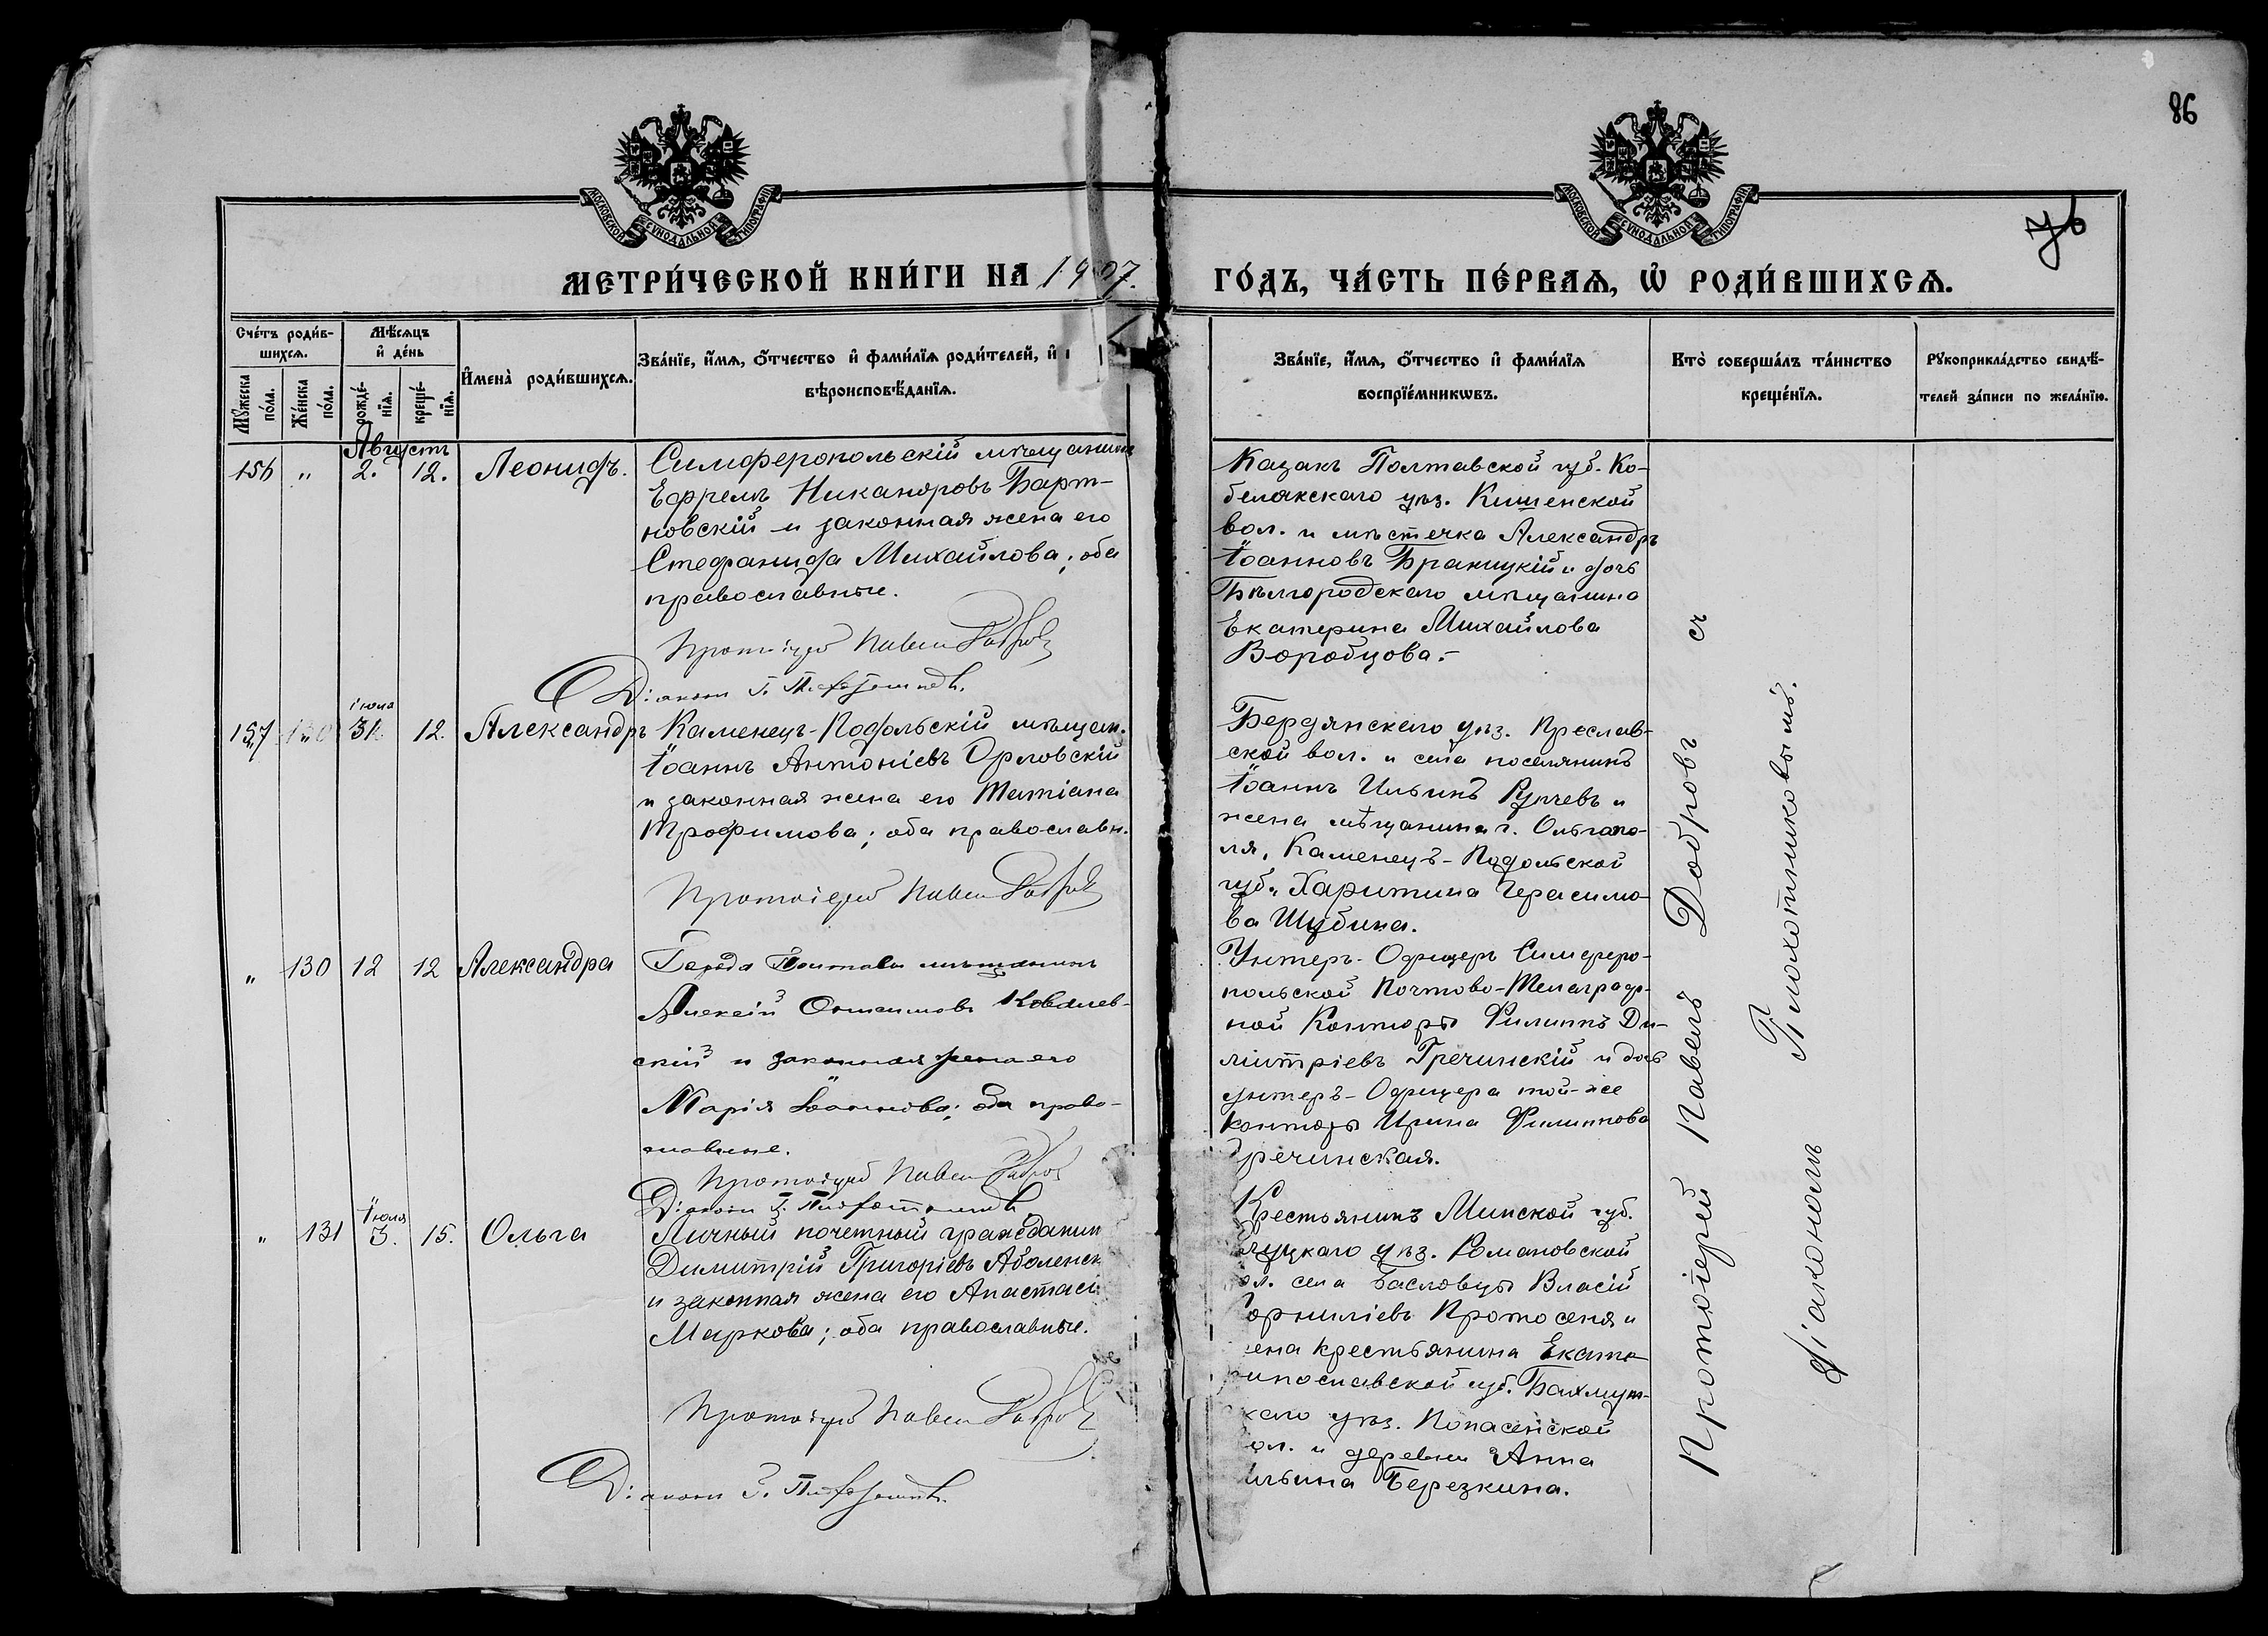 86
МОСКОВСКОЙ СУНОДАЛЬНОЙ ТИПОГРАФІИ
МОСКОВСКОЙ СУНОДАЛЬНОЙ ТИПОГРАФІИ
МЕТРИ́ЧЕСКОЙ КНИ́ГИ НА 1907.
ГО́ДЪ, ЧА́СТЬ ПЕ́РВАѦ, Ѡ҆ РОДИ́ВШИХСѦ.
Сче́тъ роди́в-
шихсѧ.
Мꙋ́жеска по́ла.
Же́нска по́ла.
Мѣ́сѧцъ
и҆ де́нь
рожде́-
нїѧ.
креще́-
нїѧ.
И҆мена̀ роди́вшихсѧ.
Зва́нїе, и҆́мѧ, ѻ҆́тчество и҆ фами́лїѧ роди́телей, и҆
вѣроисповѣ́данїѧ.
Зва́нїе, и҆́мѧ, ѻ҆́тчество и҆ фами́лїѧ
воспрїе́мникѡвъ.
Кто̀ соверша́лъ та́инство
креще́нїѧ.
Рꙋкоприкла́дство свидѣ́-
телей за́писи по жела́нїю.
Августъ
156 " 2. 12. Леонидъ.
Симферопольскій мѣщанинъ
Ефремъ Никаноровъ Барт-
новскій и законная жена его
Стефанида Михайлова; оба
православные.
Протоіерей Павелъ Добровъ
Діаконъ
Казакъ Полтавской губ. Ко-
белякскаго уѣз. Кишенской
вол. и мѣстечка Александръ
Іоанновъ Браницкій и дочь
Бѣлгородскаго мѣщанина
Екатерина Михайлова
Воробцова.-
іюля
157 " 31. 12. Александръ
Каменецъ-Подольскій мѣщан.
Іоаннъ Антоніевъ Орловскій
и законная жена его Татіана
Трофимова; оба православн.
Протоіерей Павелъ Добровъ
Бердянскаго уѣз. Преслав-
ской вол. и села поселянинъ
Іоаннъ Ильинъ Рупчевъ и
жена мѣщанина г. Ольгопо-
ля, Каменецъ-Подольской
губ. Харитина Герасимо-
ва Шубина.
" 130 12 12 Александра
Города Полтавы мѣщанинъ
Алексій Ковалев-
скій и законная жена его
Марія Іоаннова; оба право-
славные.
Протоіерей Павелъ Добровъ
Діаконъ
Унтеръ-Офицеръ Симферо-
польской Почтово-Телеграф-
ной Конторы Филиппъ Ди-
митріевъ Гречинскій и дочь
унтеръ-Офицера той-же
конторы Ирина Филиппова
Гречинская.
Іюля
" 131 3. 15. Ольга
Личный почетный гражданин
Димитрій Григоріевъ Аболенск
и законная жена его Анастасі
Маркова; оба православные.
Протоіерей Павелъ Добровъ
Діаконъ
Крестьянинъ Минской губ.
луцкаго уѣз. Романовской
ол. села Басловцы Власій
орниліевъ Протосеня и
ена крестьянина Екате-
ринославской губ. Бахмут-
скаго уѣз. Попасенской
ол. и деревни Анна
ильина Березкина.
Протоіерей Павелъ Добровъ съ
Діакономъ Плохотниковымъ.